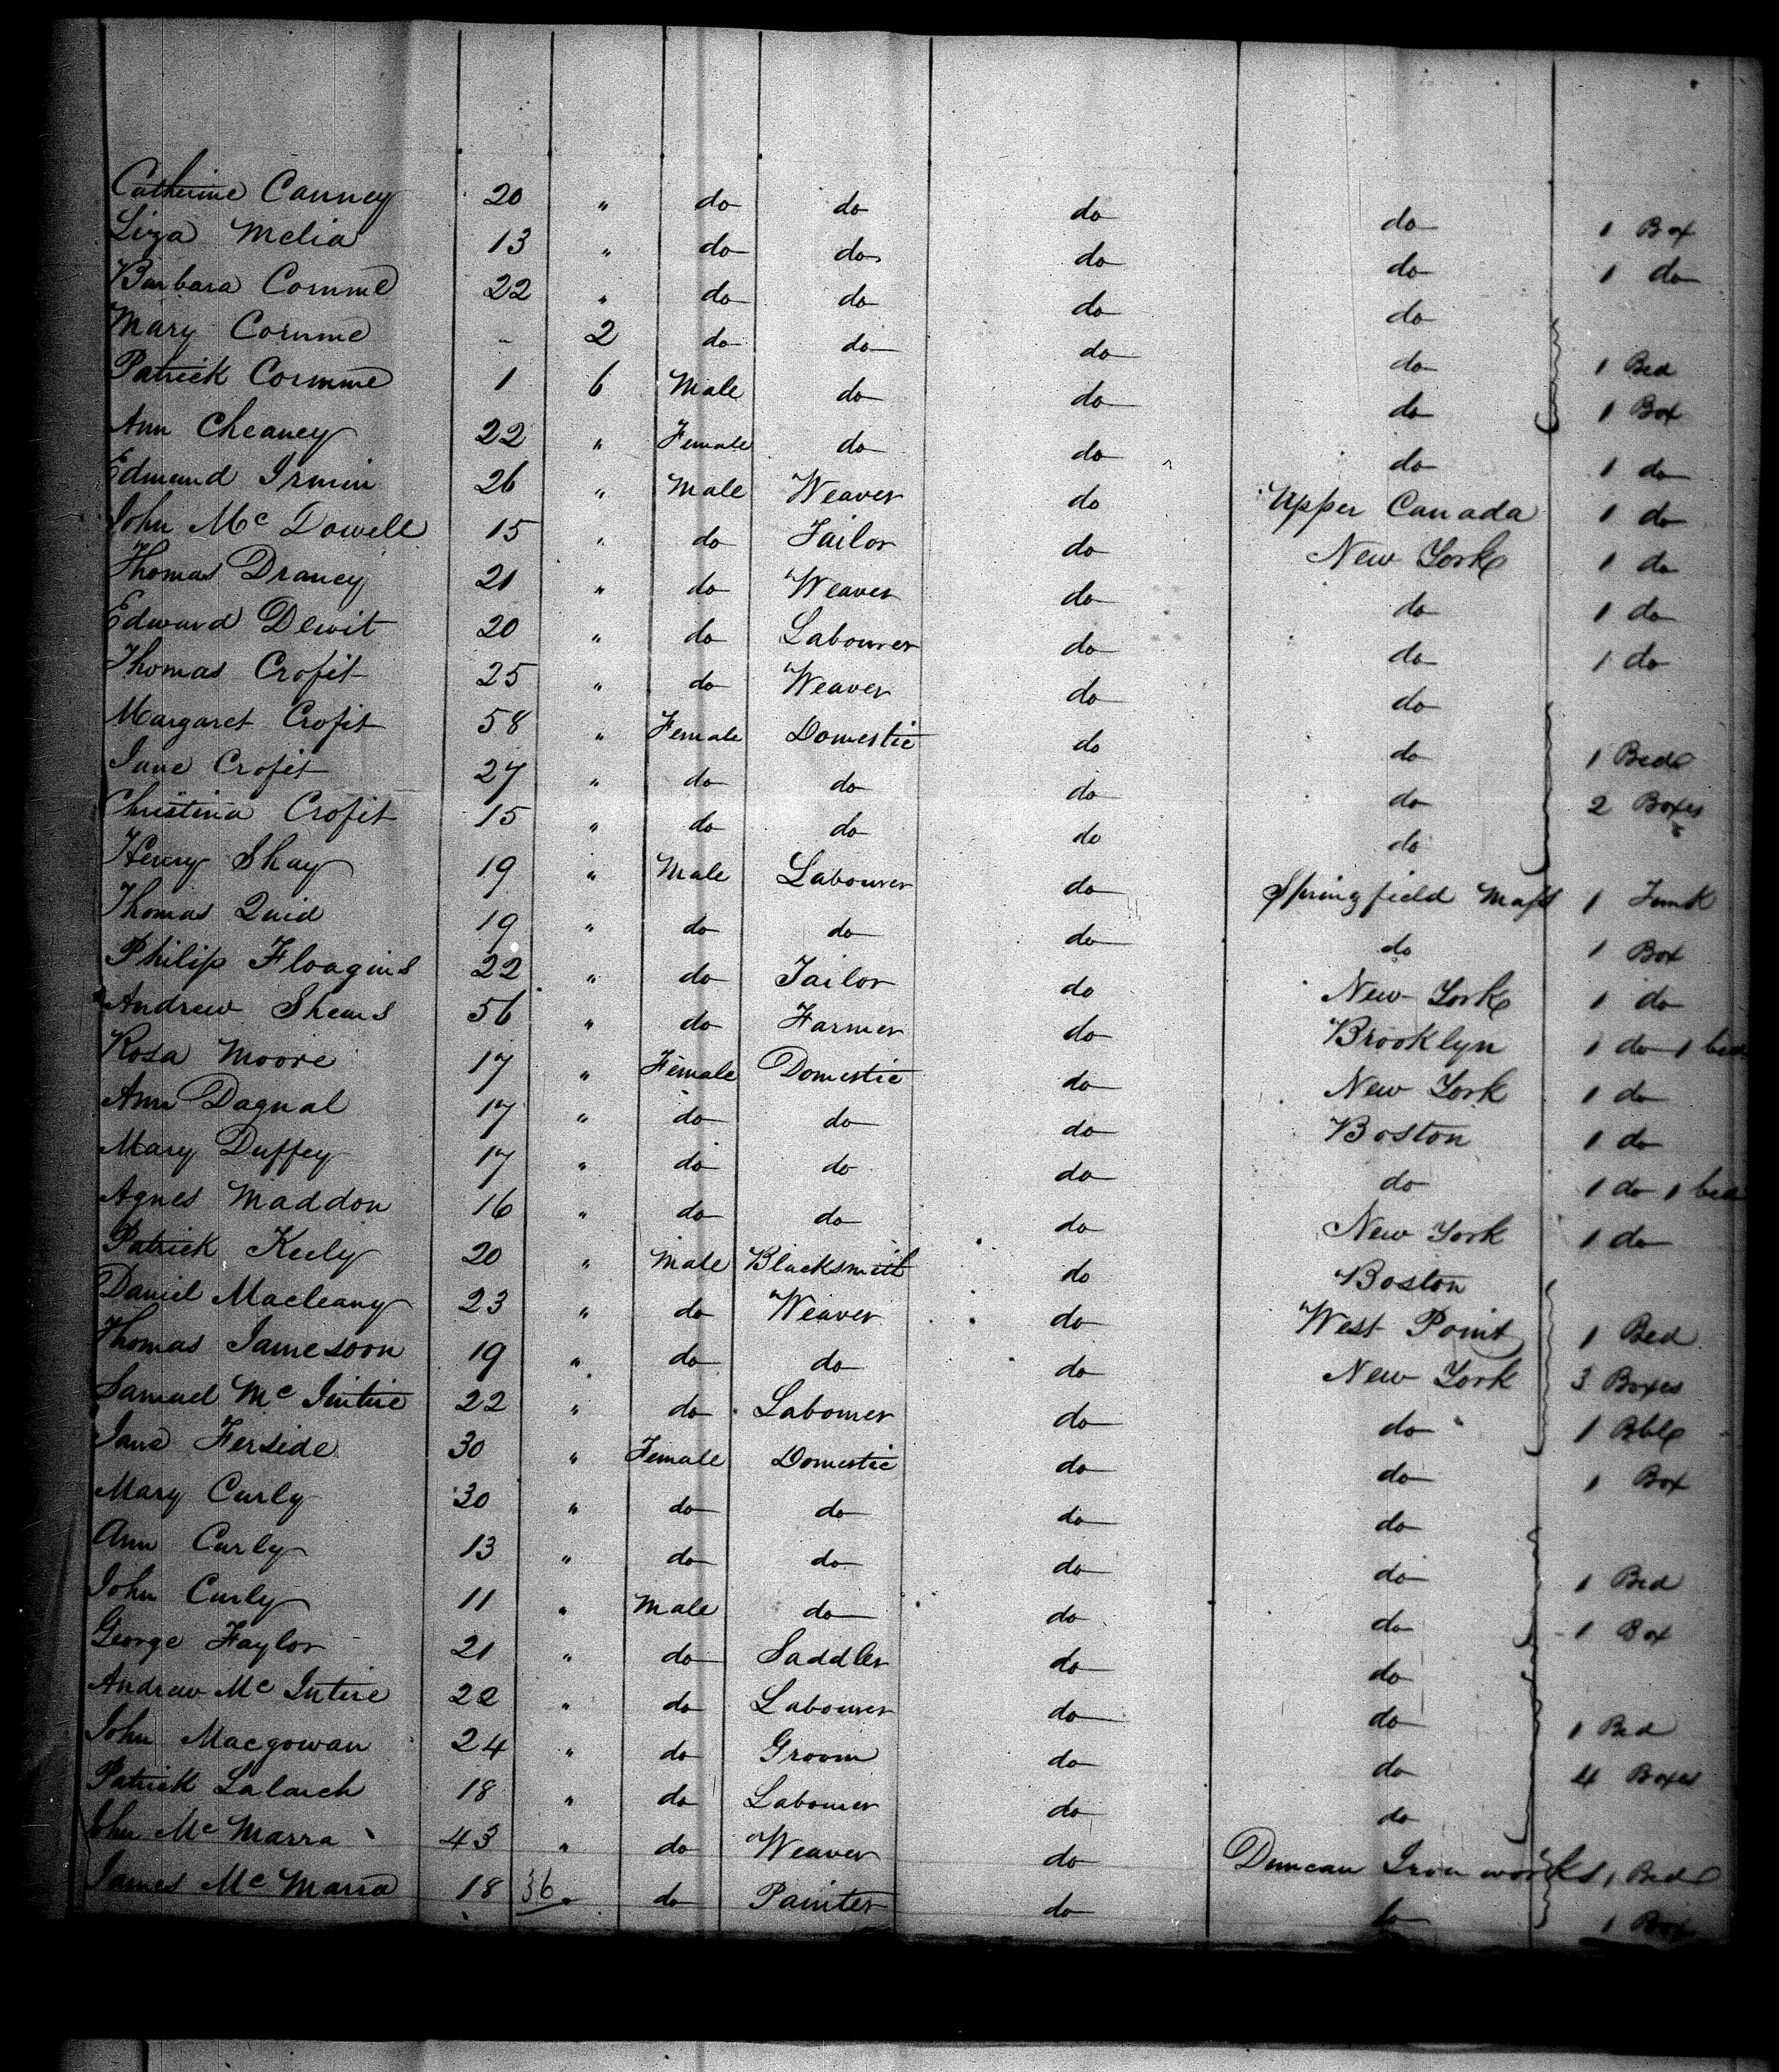 Catherine Canney 20 " do do do do 1 Box
Liza Melia 13 " do do do do 1 do
Barbara Comme 22 " do do do do
Mary Comme - 2 do do do do 1 Bed
Patrick Comme 1 6 Male do do do 1 Box
Ann Cheaney 22 " Female do do do 1 do
Edmund Irmin 26 " Male Weaver do Upper Canada 1 do
John Mc Dowell 15 " do Tailor do New York 1 do
Thomas Draney 21 " do Weaver do do 1 do
Edward Dewit 20 " do Labourer do do 1 do
Thomas Crofit 25 " do Weaver do do
Margaret Crofit 58 " Female Domestic do do 1 Bed
Jane Crofit 27 " do do do do 2 Boxes
Christina Crofit 15 " do do do do
Henry Shay 19 " Male Labourer do Springfield Mass 1 Trunk
Thomas Quid 19 " do do do do 1 Box
Philip Floagins 22 " do Tailor do New York 1 do
Andrew Shears 56 " do Farmer do Brooklyn 1 do 1 bed
Rosa Moore 17 " Female Domestic do New York 1 do
Ann Dagnal 17 " do do do Boston 1 do
Mary Duffey 17 " do do do do 1 do 1 bed
Agnes Maddon 16 " do do do New York 1 do
Patrick Keely 20 " Male Blacksmith do Boston
Daniel Macleany 23 " do Weaver do West Point 1 Bed
Thomas Jamesoon 19 " do do do New York 3 Boxes
Samuel Mc Intire 22 " do Labourer do do 1 Bbl
Jane Ferside 30 " Female Domestic do do 1 Box
Mary Curly 30 " do do do do
Ann Curly 13 " do do do do 1 Bed
John Curly 11 " Male do do do 1 Box
George Taylor 21 " do Saddler do do
Andrew Mc Intire 22 " do Labourer do do 1 Bed
John Macgowan 24 " do Groom do do 4 Boxes
Patrick Lalaich 18 " do Labourer do do
John Mc Marra 43 " do Weaver do Duncan Iron works 1 Bed
James Mc Marra 18 36 " do Painter do do 1 Box